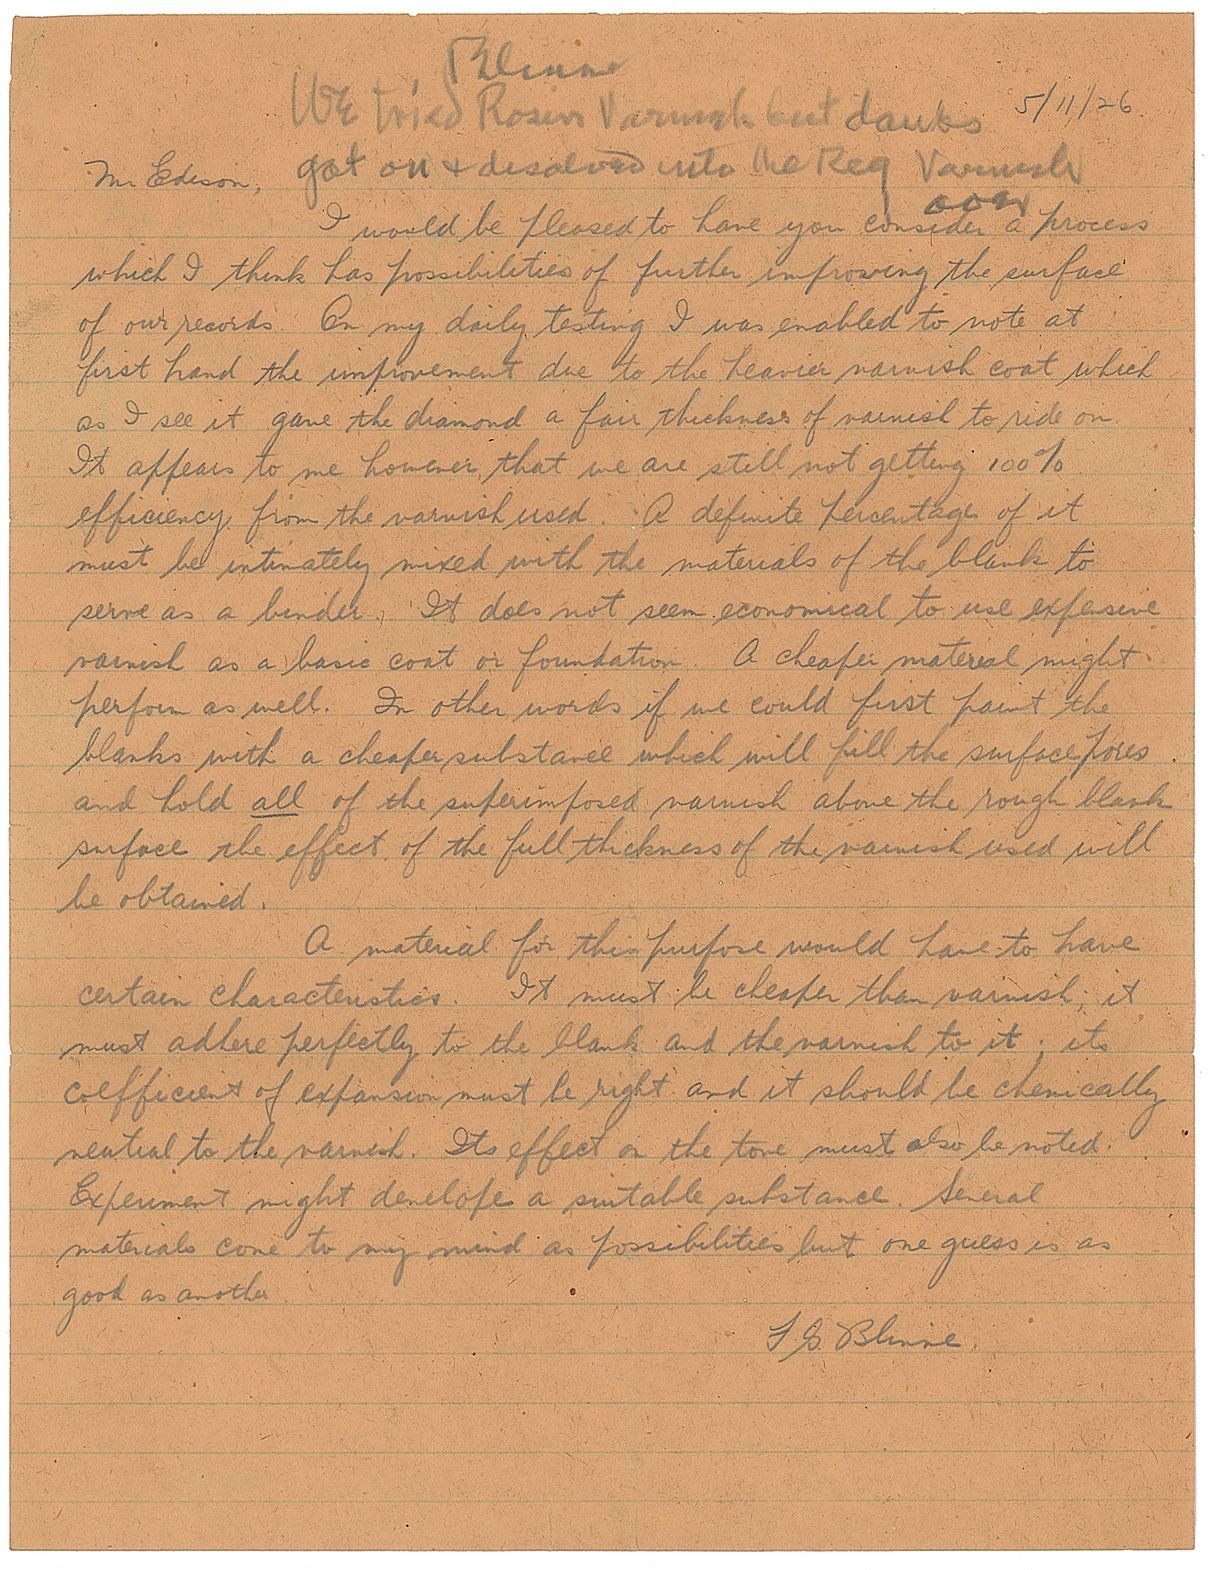 Blinne
We tried Rosin Varnish but daubs
5/11/26
got on & disolved into the Reg Varnish
Mr Edison,
I would be pleased to have you consider a process
which I think has possibilities of further improving the surface
of our records. On my daily testing I was enabled to note at
first hand the improvement due to the heavier varnish coat which
as I see it gave the diamond a fair thickness of varnish to ride on.
It appears to me however, that we are still not getting 100%
efficiency from the varnish used. A definite percentage of it
must be intimately mixed with the materials of the blank to
serve as a binder. It does not seem economical to use expensive
varnish as a basic coat or foundation. A cheaper material might
perform as well. In other words if we could first paint the
blanks with a cheaper substance which will fill the surface pores
and hold all of the superimposed varnish above the rough blank
surface the effect of the full thickness of the varnish used will
be obtained.
A material for this purpose would have to have
certain characteristics. It must be cheaper than varnish; it
must adhere perfectly to the blank and the varnish to it; its
coefficient of expansion must be right and it should be chemically
neutral to the varnish. Its effect on the tone must also be noted.
Experiment might develope a suitable substance. Several
materials come to my mind as possibilities but one guess is as
good as another.
F S. Blinne.